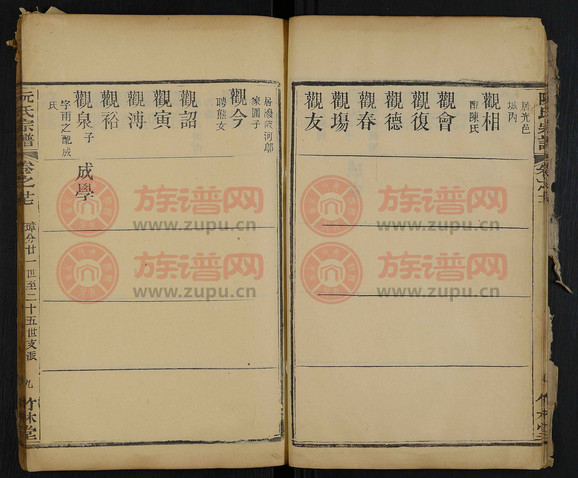 居光邑
城內
觀相
配陳氏
觀會
觀復
觀德
觀春
觀塲
觀友
居潑
河鄢
家圍子
觀今
聘熊女
觀詔
觀寅
觀溥
觀裕
觀泉子
成學
字雨之配成
氏
阮氏宗譜
卷之廿
璋分廿一世至二十五世支派
九
竹林堂
族谱网
www.zupu.cn
族谱网
www.zupu.cn
族谱网
www.zupu.cn
族谱网
www.zupu.cn